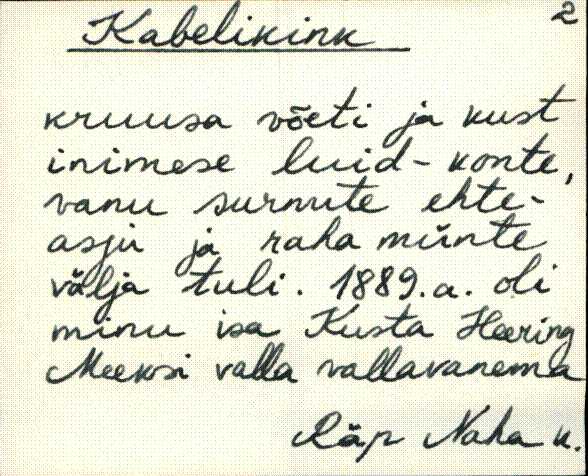 2
Kabelikink
kruusa võeti ja kust
inimese luid-konte,
vanu surnute ehte-
asju ja raha münte
välja tuli. 1889.a. oli
minu isa Kusta Heering
Meeksi valla vallavanema
Räp Naha k.